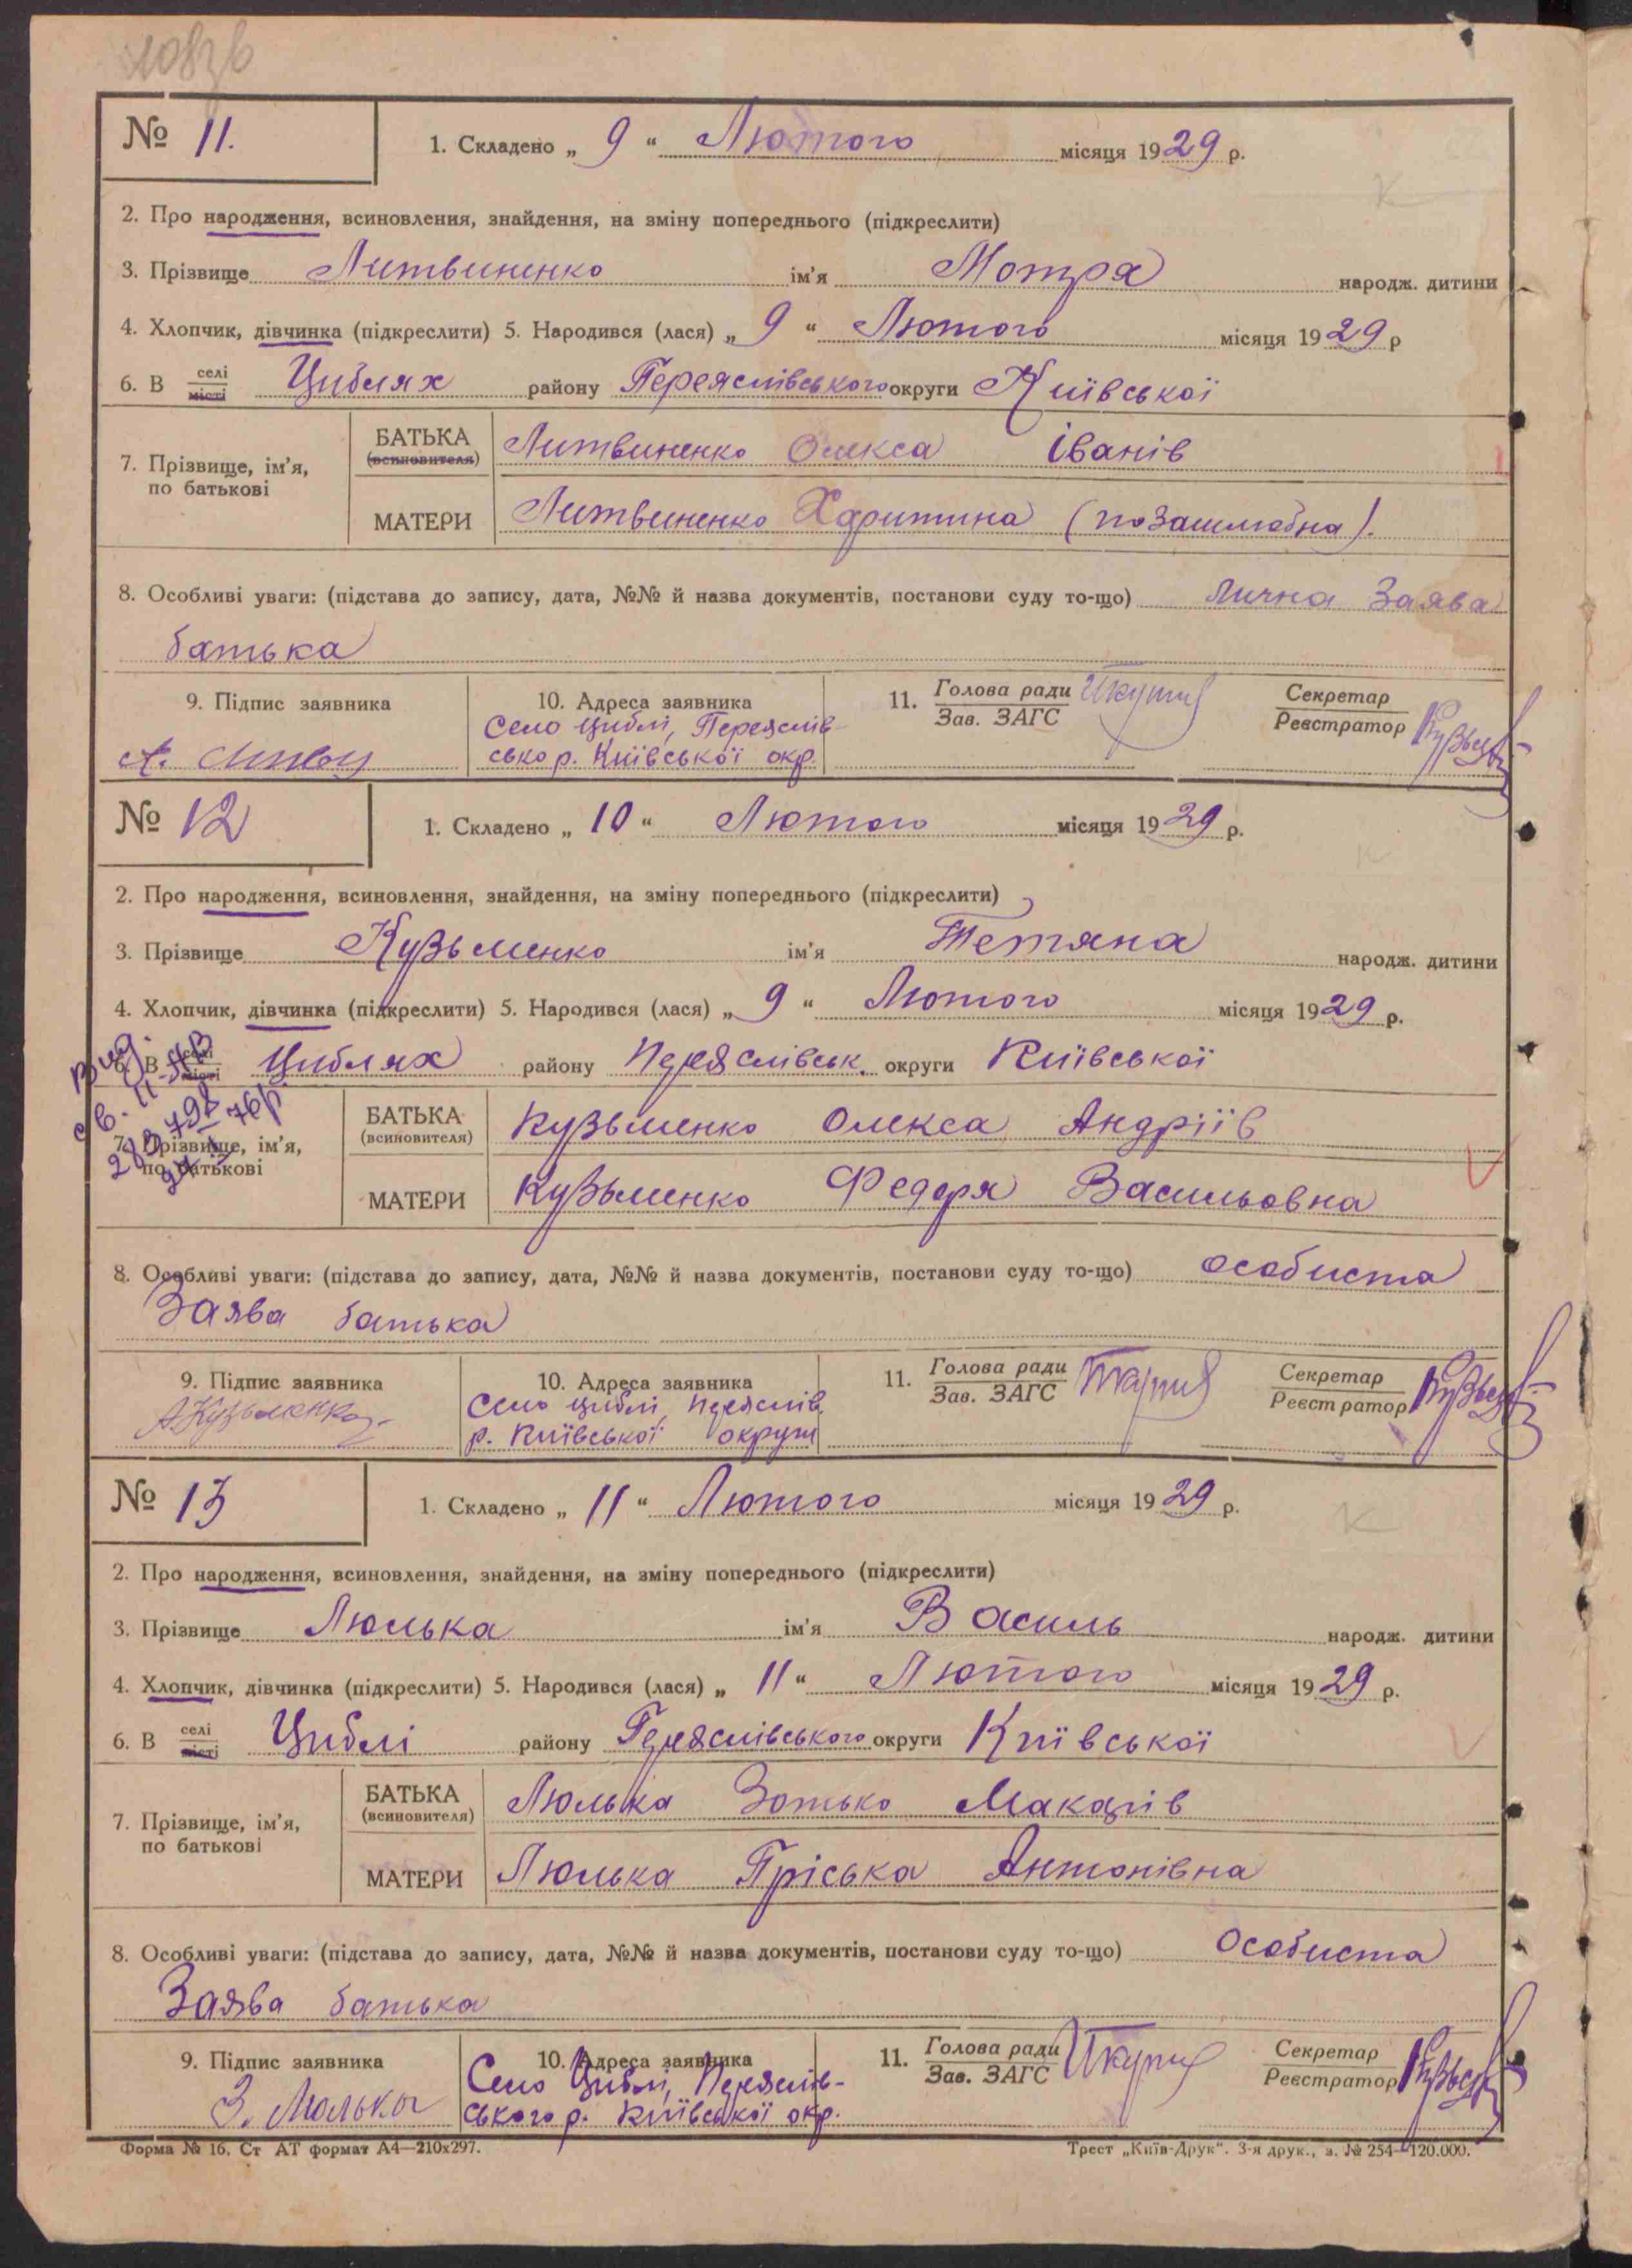 № 11. 1. Складено „ 9 “ Лютого місяця 1929 р.
2. Про народження, всиновления, знайдення, на зміну попереднього (підкреслити)
3. Прізвище Литвиненко ім'я Мотря народж. дитини
4. Хлопчик, дівчинка (підкреслити) 5. Народився (лася) „ 9 “ Лютого місяця 1929 р
6. В селі місті Циблях району Переяслівського округи Київської
7. Прізвище, ім'я, по батькові
БАТЬКА (всиновителя) Литвиненко Олекса Іванів
МАТЕРИ Литвиненко Харитина (позашлюбна).
8. Особливі уваги: (підстава до запису, дата, №№ й назва документів, постанови суду то-що) Лична Заява
батька
9. Підпис заявника 10. Адреса заявника 11. Голова ради Зав. ЗАГС Секретар Реєстратор
Село Циблі, Переяслів-
сько р. Київської окр.
№ 12 1. Складено „ 10 “ Лютого місяця 1929 р.
2. Про народження, всиновлення, знайдення, на зміну попереднього (підкреслити)
3. Прізвище Кузьменко ім'я Тетяна народж. дитини
4. Хлопчик, дівчинка (підкреслити) 5. Народився (лася) „ 9 “ Лютого місяця 1929 р.
6. В селі місті Циблях району Переяслівськ. округи Київської
7. Прізвище, ім'я, по батькові
БАТЬКА (всиновителя) Кузьменко Олекса Андріїв
МАТЕРИ Кузьменко Федоря Васильовна
8. Особливі уваги: (підстава до запису, дата, №№ й назва документів, постанови суду то-що) особиста
Заява батька
9. Підпис заявника 10. Адреса заявника 11. Голова ради Зав. ЗАГС Секретар Реєстратор
А Кузьменко
Село Циблі, Переяслів.
р. Київської округи
№ 13 1. Складено „ 11 “ Лютого місяця 1929 р.
2. Про народження, всиновлення, знайдення, на зміну попереднього (підкреслити)
3. Прізвище Люлька ім'я Василь народж. дитини
4. Хлопчик, дівчинка (підкреслити) 5. Народився (лася) „ 11 “ Лютого місяця 1929 р.
6. В селі місті Циблі району Переяслівського округи Київської
7. Прізвище, ім'я, по батькові
БАТЬКА (всиновителя) Люлька Зотько Макарів
МАТЕРИ Люлька Пріська Антонівна
8. Особливі уваги: (підстава до запису, дата, №№ й назва документів, постанови суду то-що) Особиста
Заява батька
9. Підпис заявника 10. Адреса заявника 11. Голова ради Зав. ЗАГС Секретар Реєстратор
З. Люлька
Село Циблі, Переяслів-
ського р. Київської окр.
Форма № 16. Ст АТ формат А4—210х297. Трест „Київ-Друк“. 3-я друк., з. № 254—120.000.